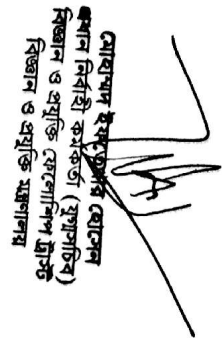 মোহাম্মদ ইফতেখার হোসেন
প্রধান নির্বাহী কর্মকর্তা (যুগ্মসচিব)
বিজ্ঞান ও প্রযুক্তি ফেলোশিপ ট্রাস্ট
বিজ্ঞান ও প্রযুক্তি মন্ত্রণালয়